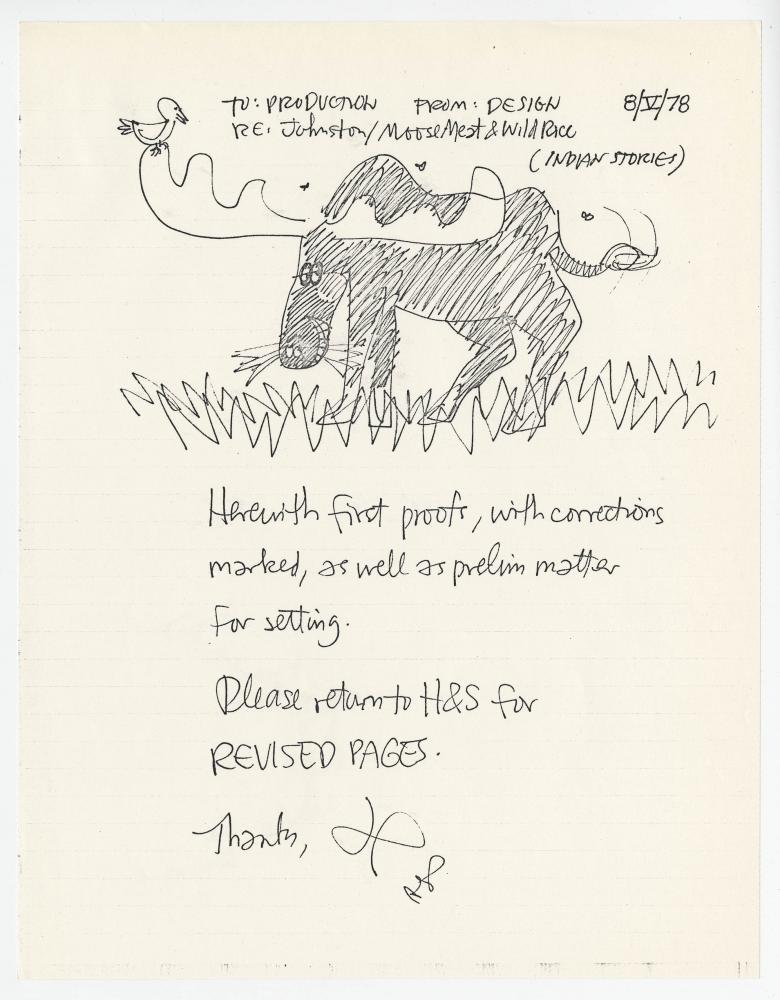 TO: PRODUCTION FROM: DESIGN 8/V/78
RE: Johnston/MooseMeat & Wild Rice
(INDIAN STORIES)
Herewith first proofs, with corrections
marked, as well as prelim matter
for setting.
Please return to H&S for
REVISED PAGES.
Thanks,